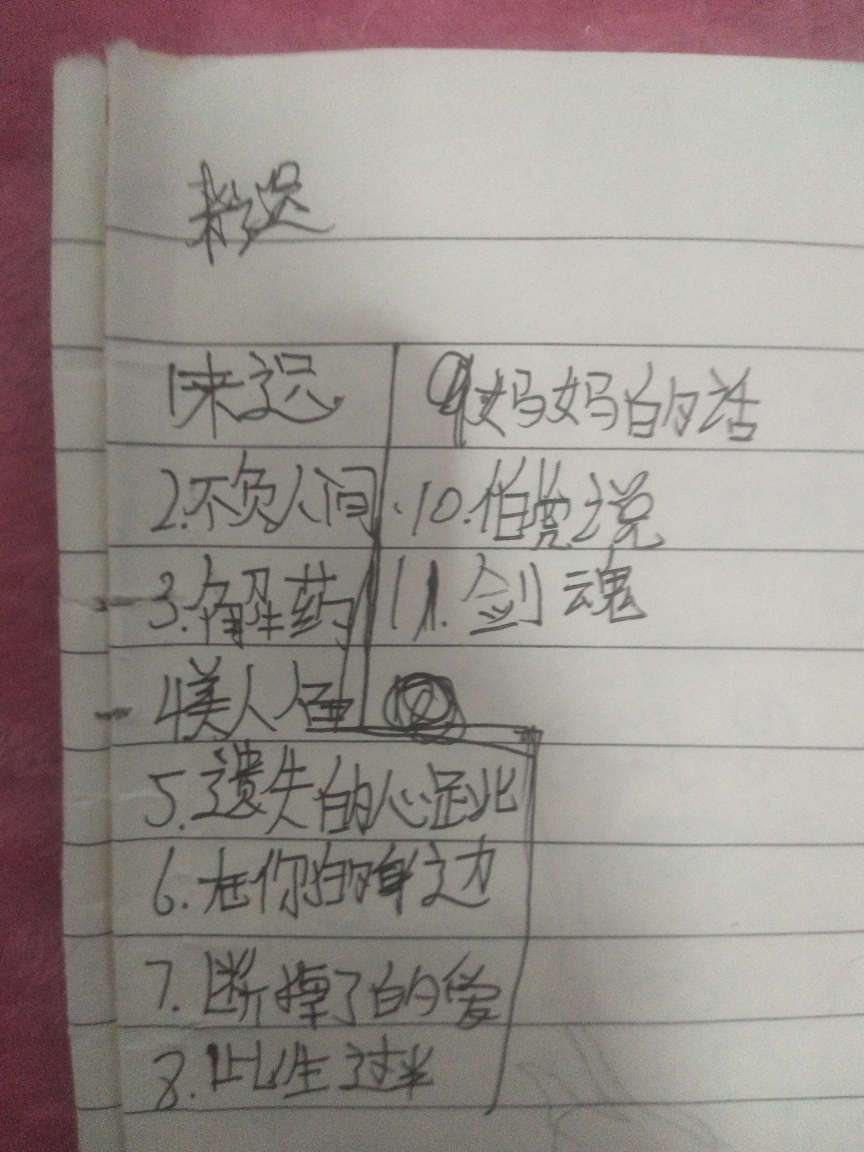 1来迟
2.不负人间
3.解药
4美人鱼
5.遗失的心跳
6.在你的身边
7.断掉了的爱
8.此生过半
9听妈妈的话
10.伯虎说
11.剑魂